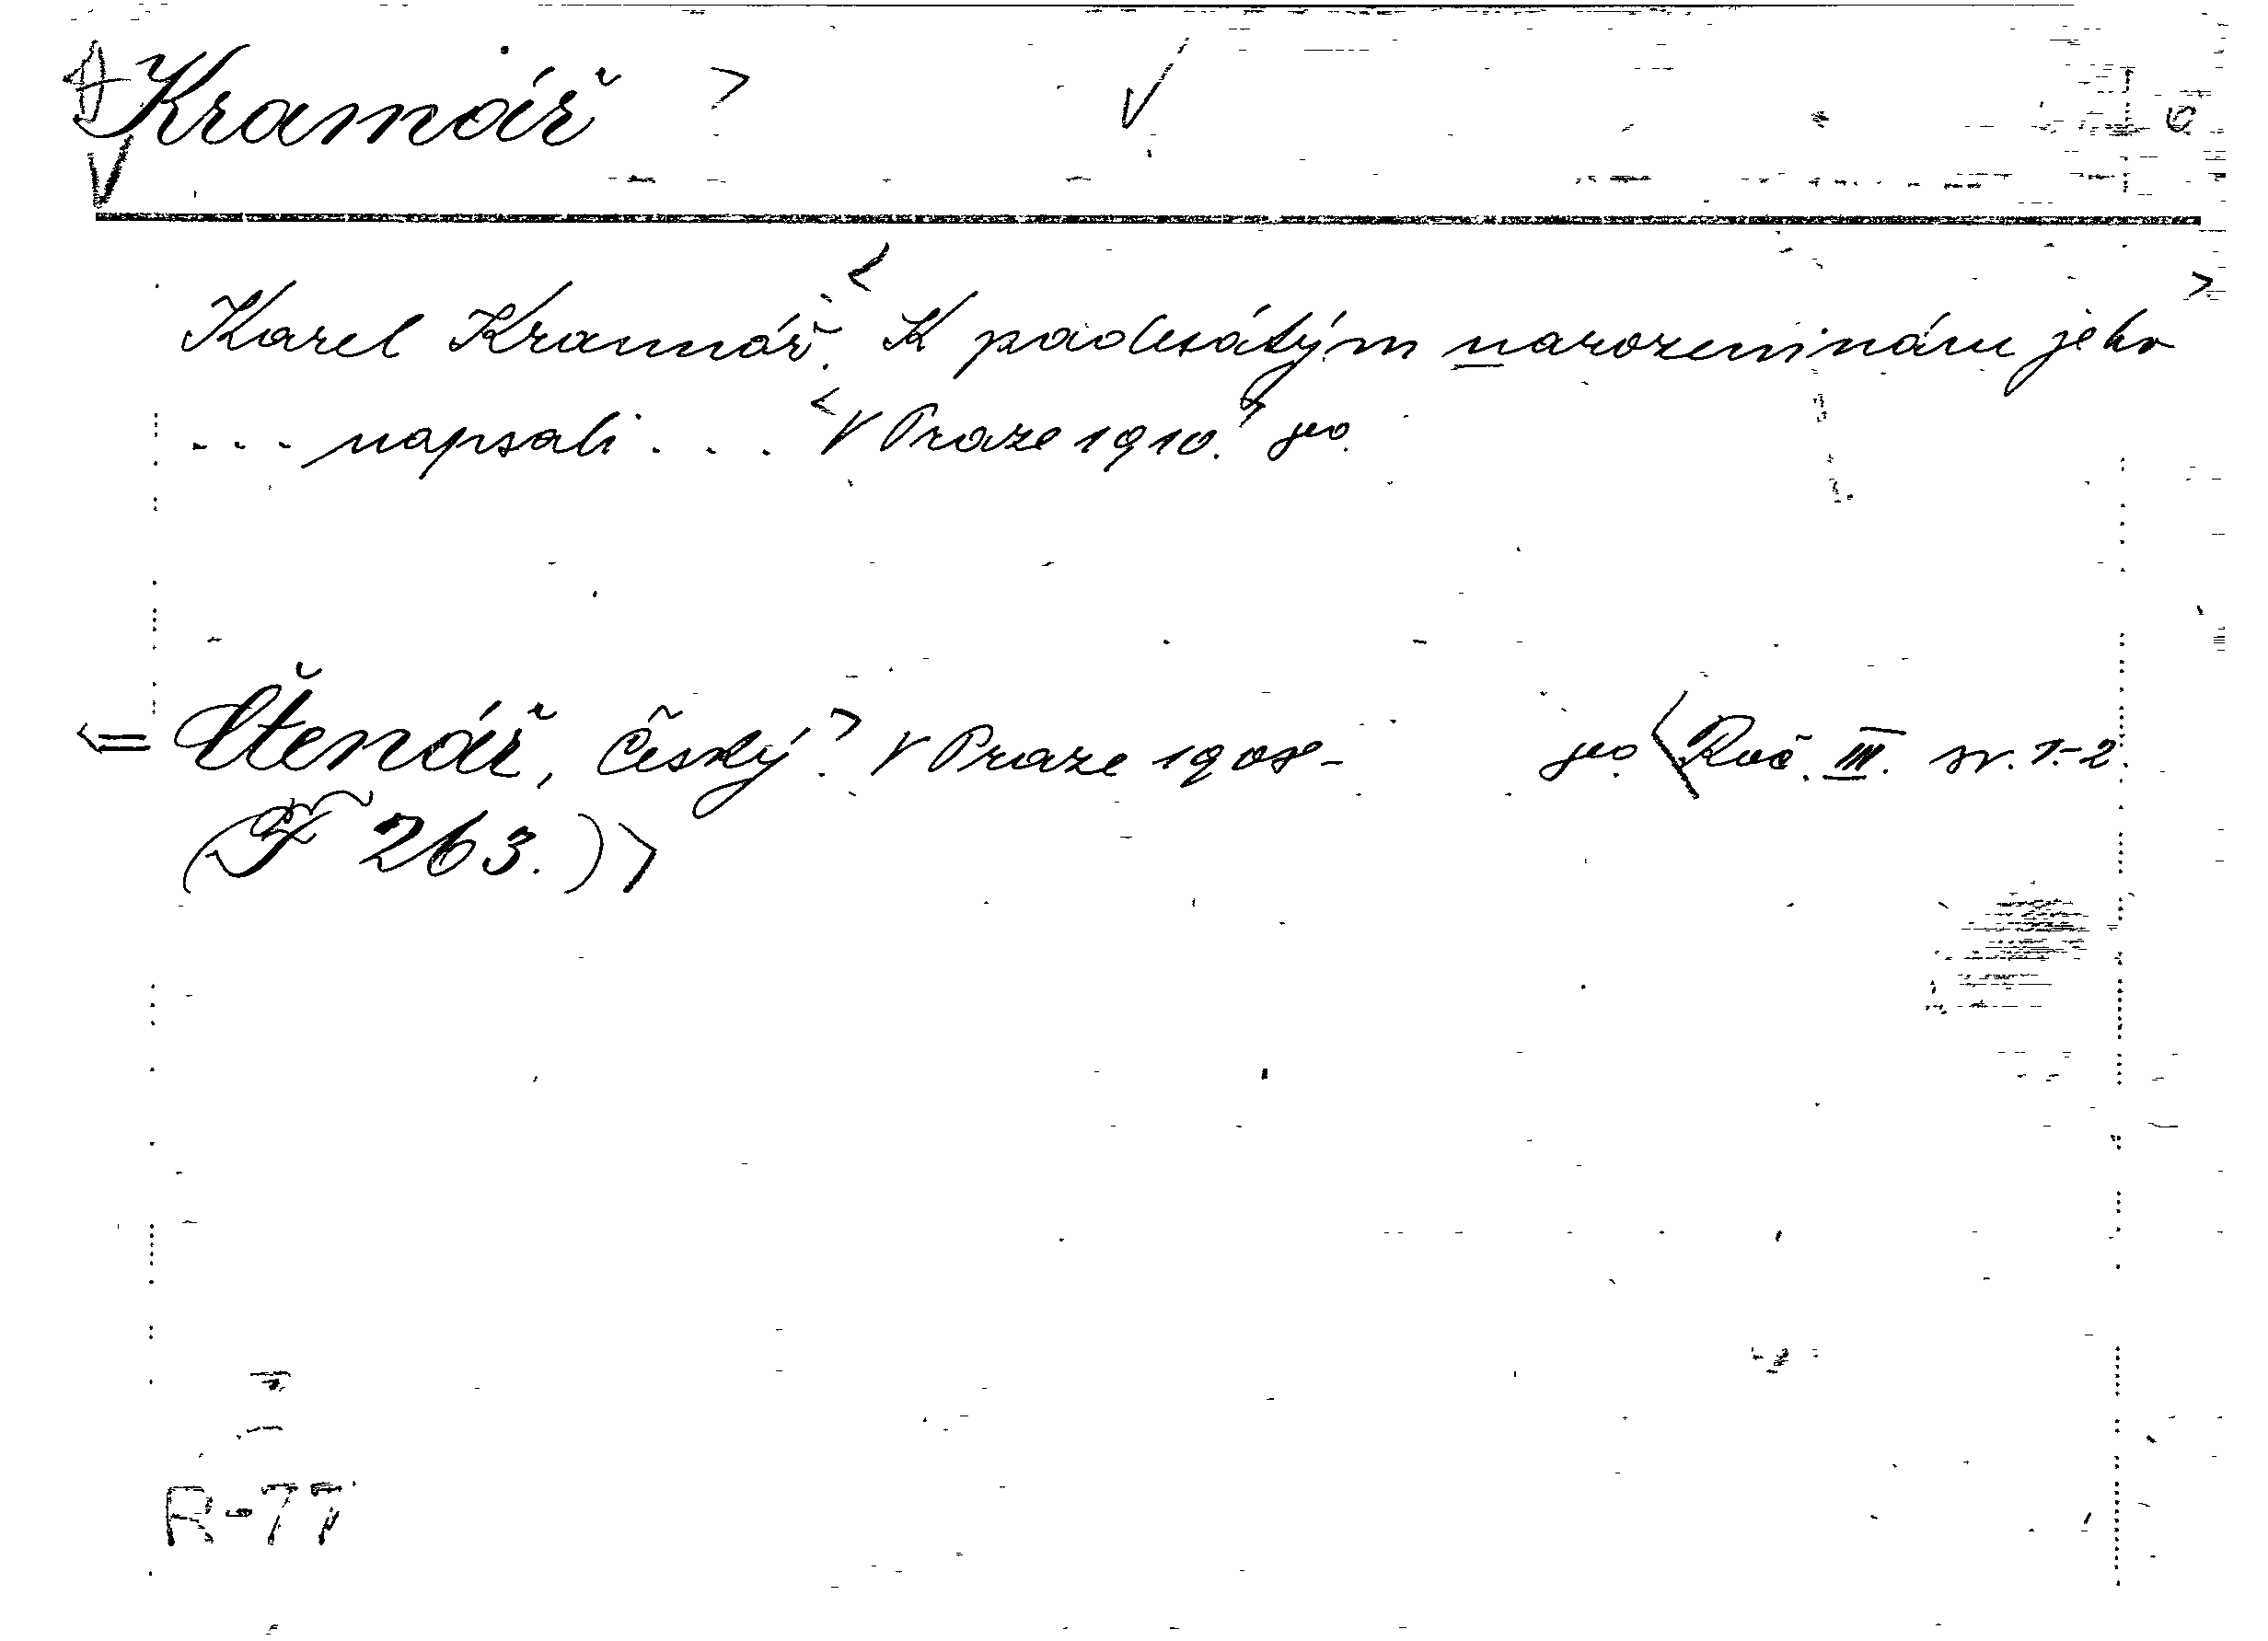 Kramář
Karel Kramář. K padesátým narozeninám jeho
... napsali ... V Praze 1910. 8º.
= Čtenář, Český. V Praze 1908- 8º. Roč. III. sv. 1.-2.
(F 263.)
R-77